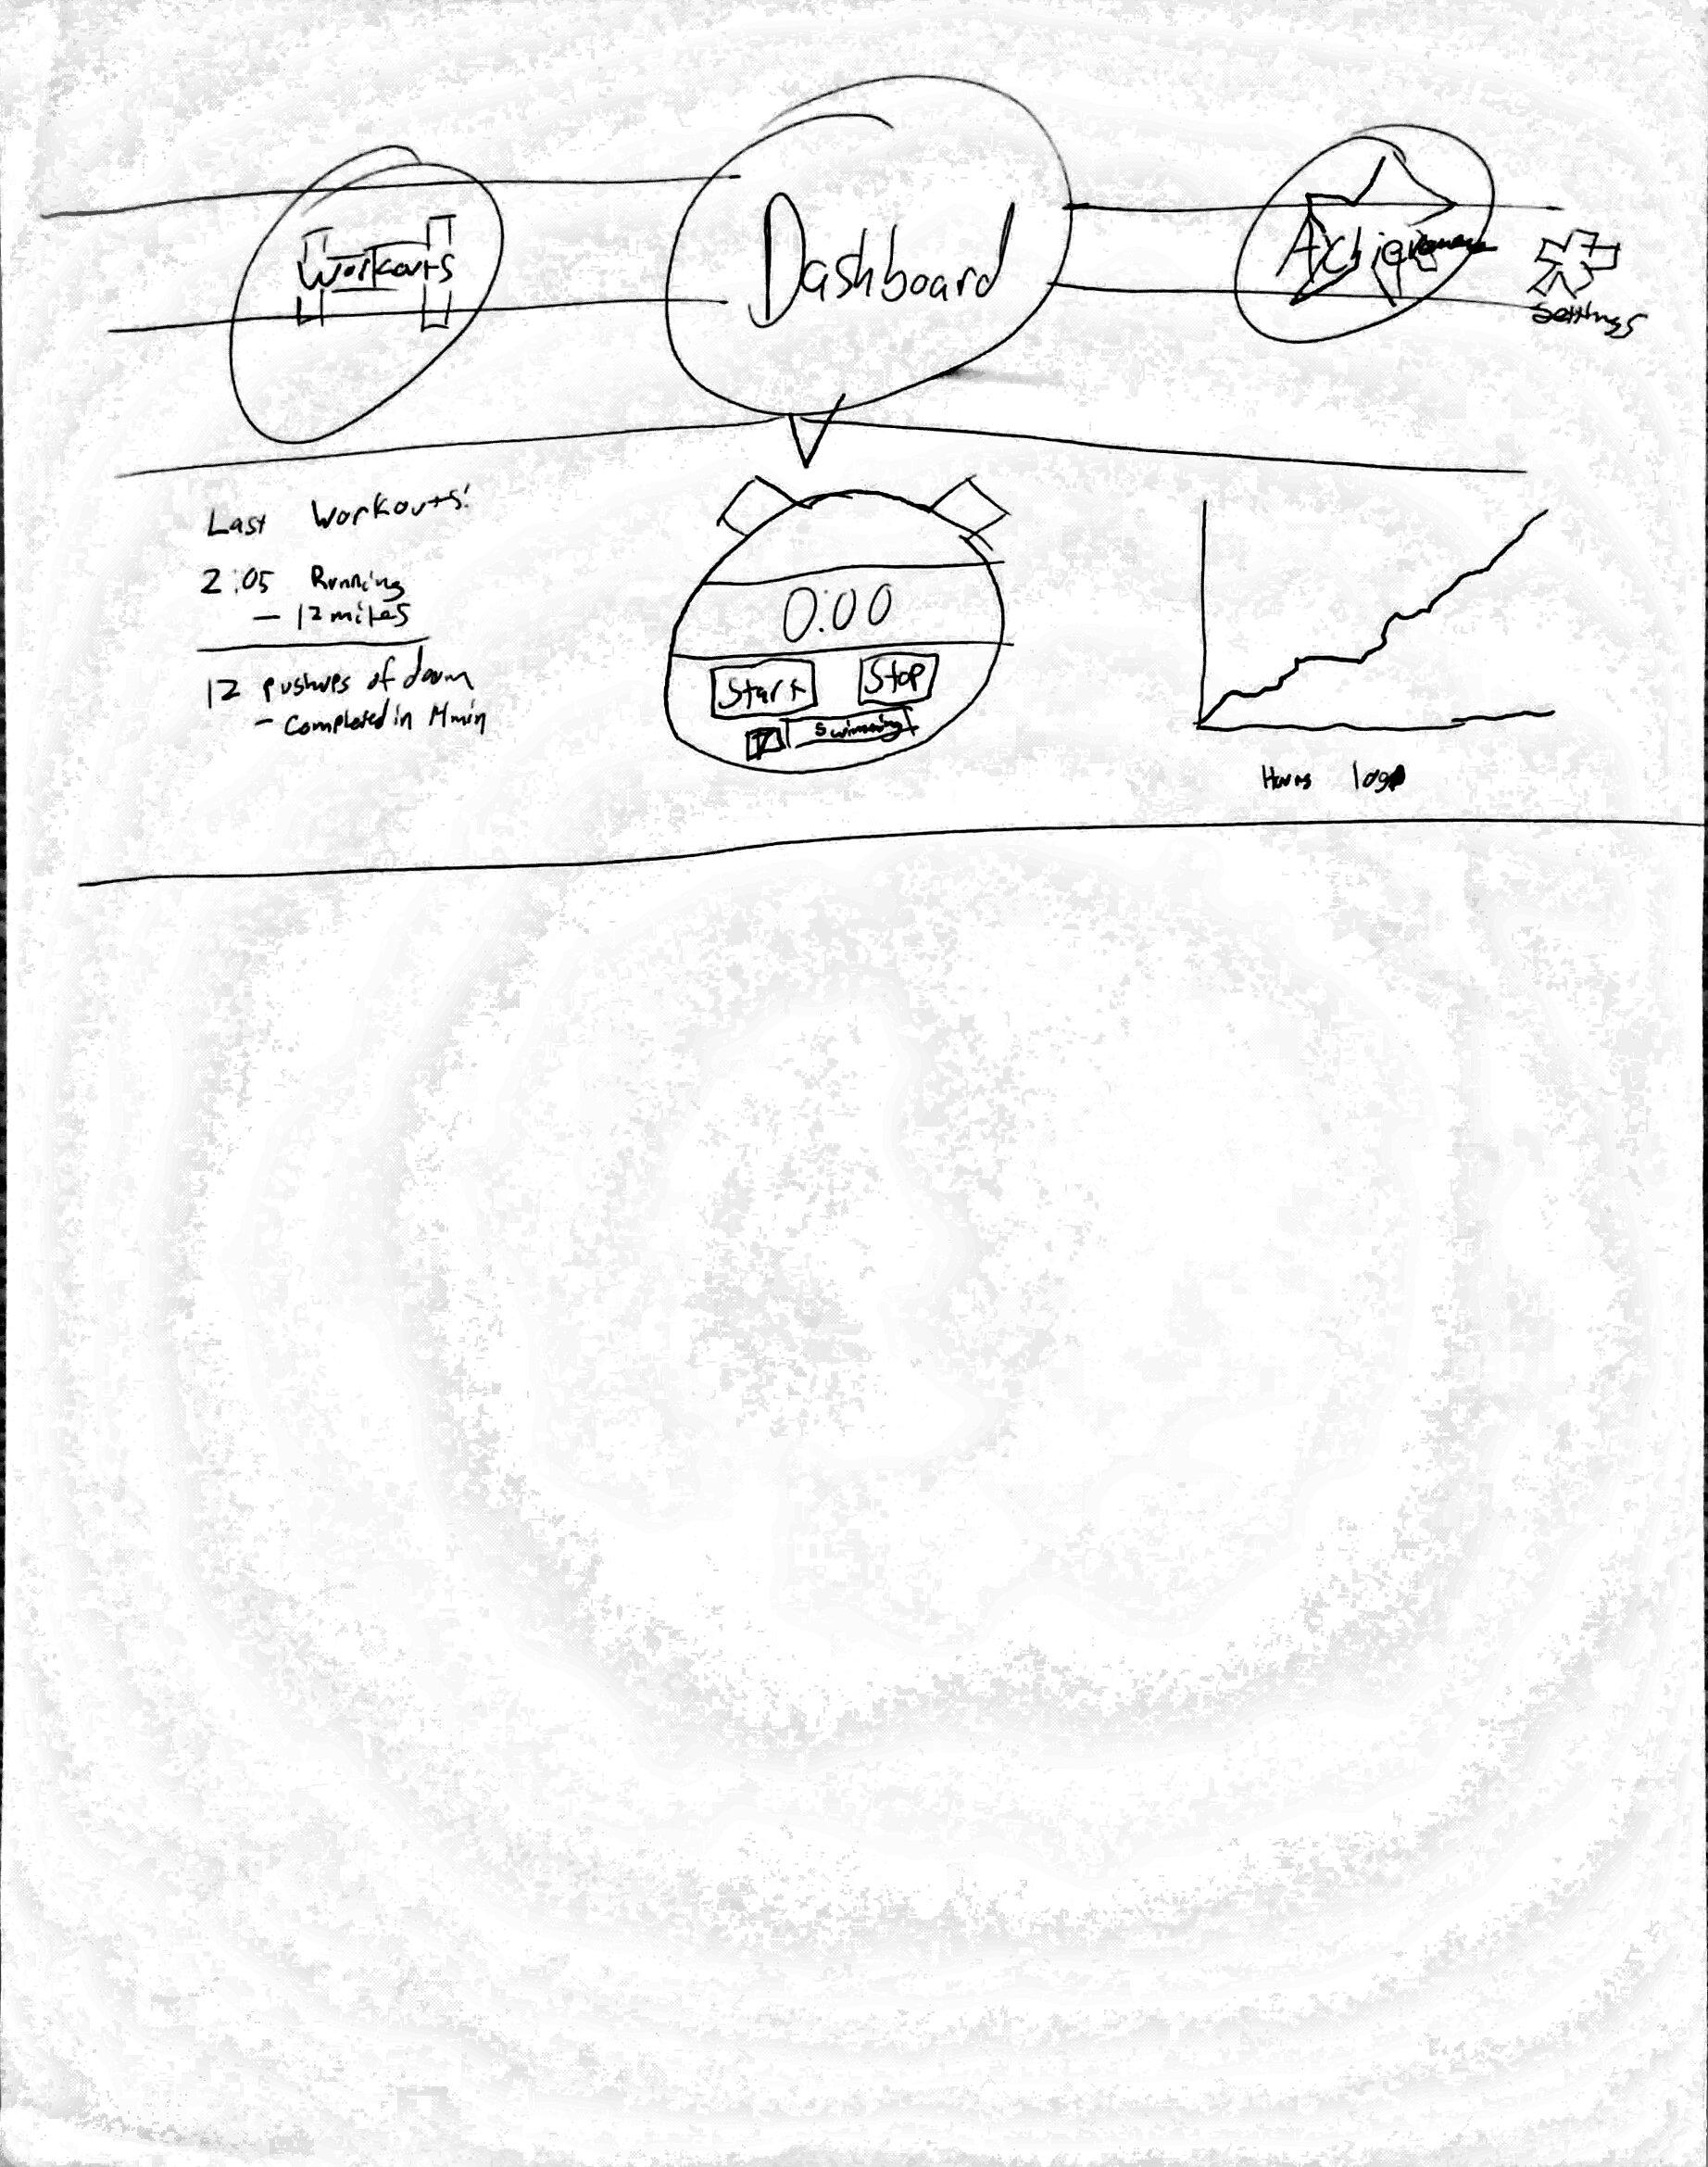 Workouts
Dashboard
Achievements
Settings
Last Workouts:
2:05 Running
- 12 miles
12 pushups of doom
- Completed in min
0:00
Start
Stop
Swimming
Hours log